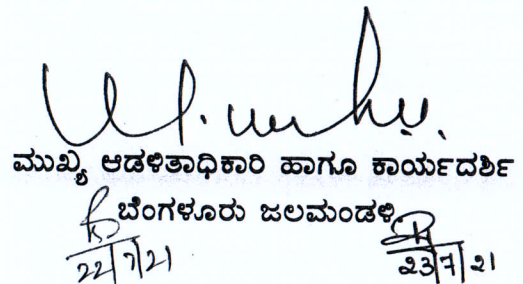 ಮುಖ್ಯ ಆಡಳಿತಾಧಿಕಾರಿ ಹಾಗೂ ಕಾರ್ಯದರ್ಶಿ
ಬೆಂಗಳೂರು ಜಲಮಂಡಳಿ
22/7/21 23/7/21